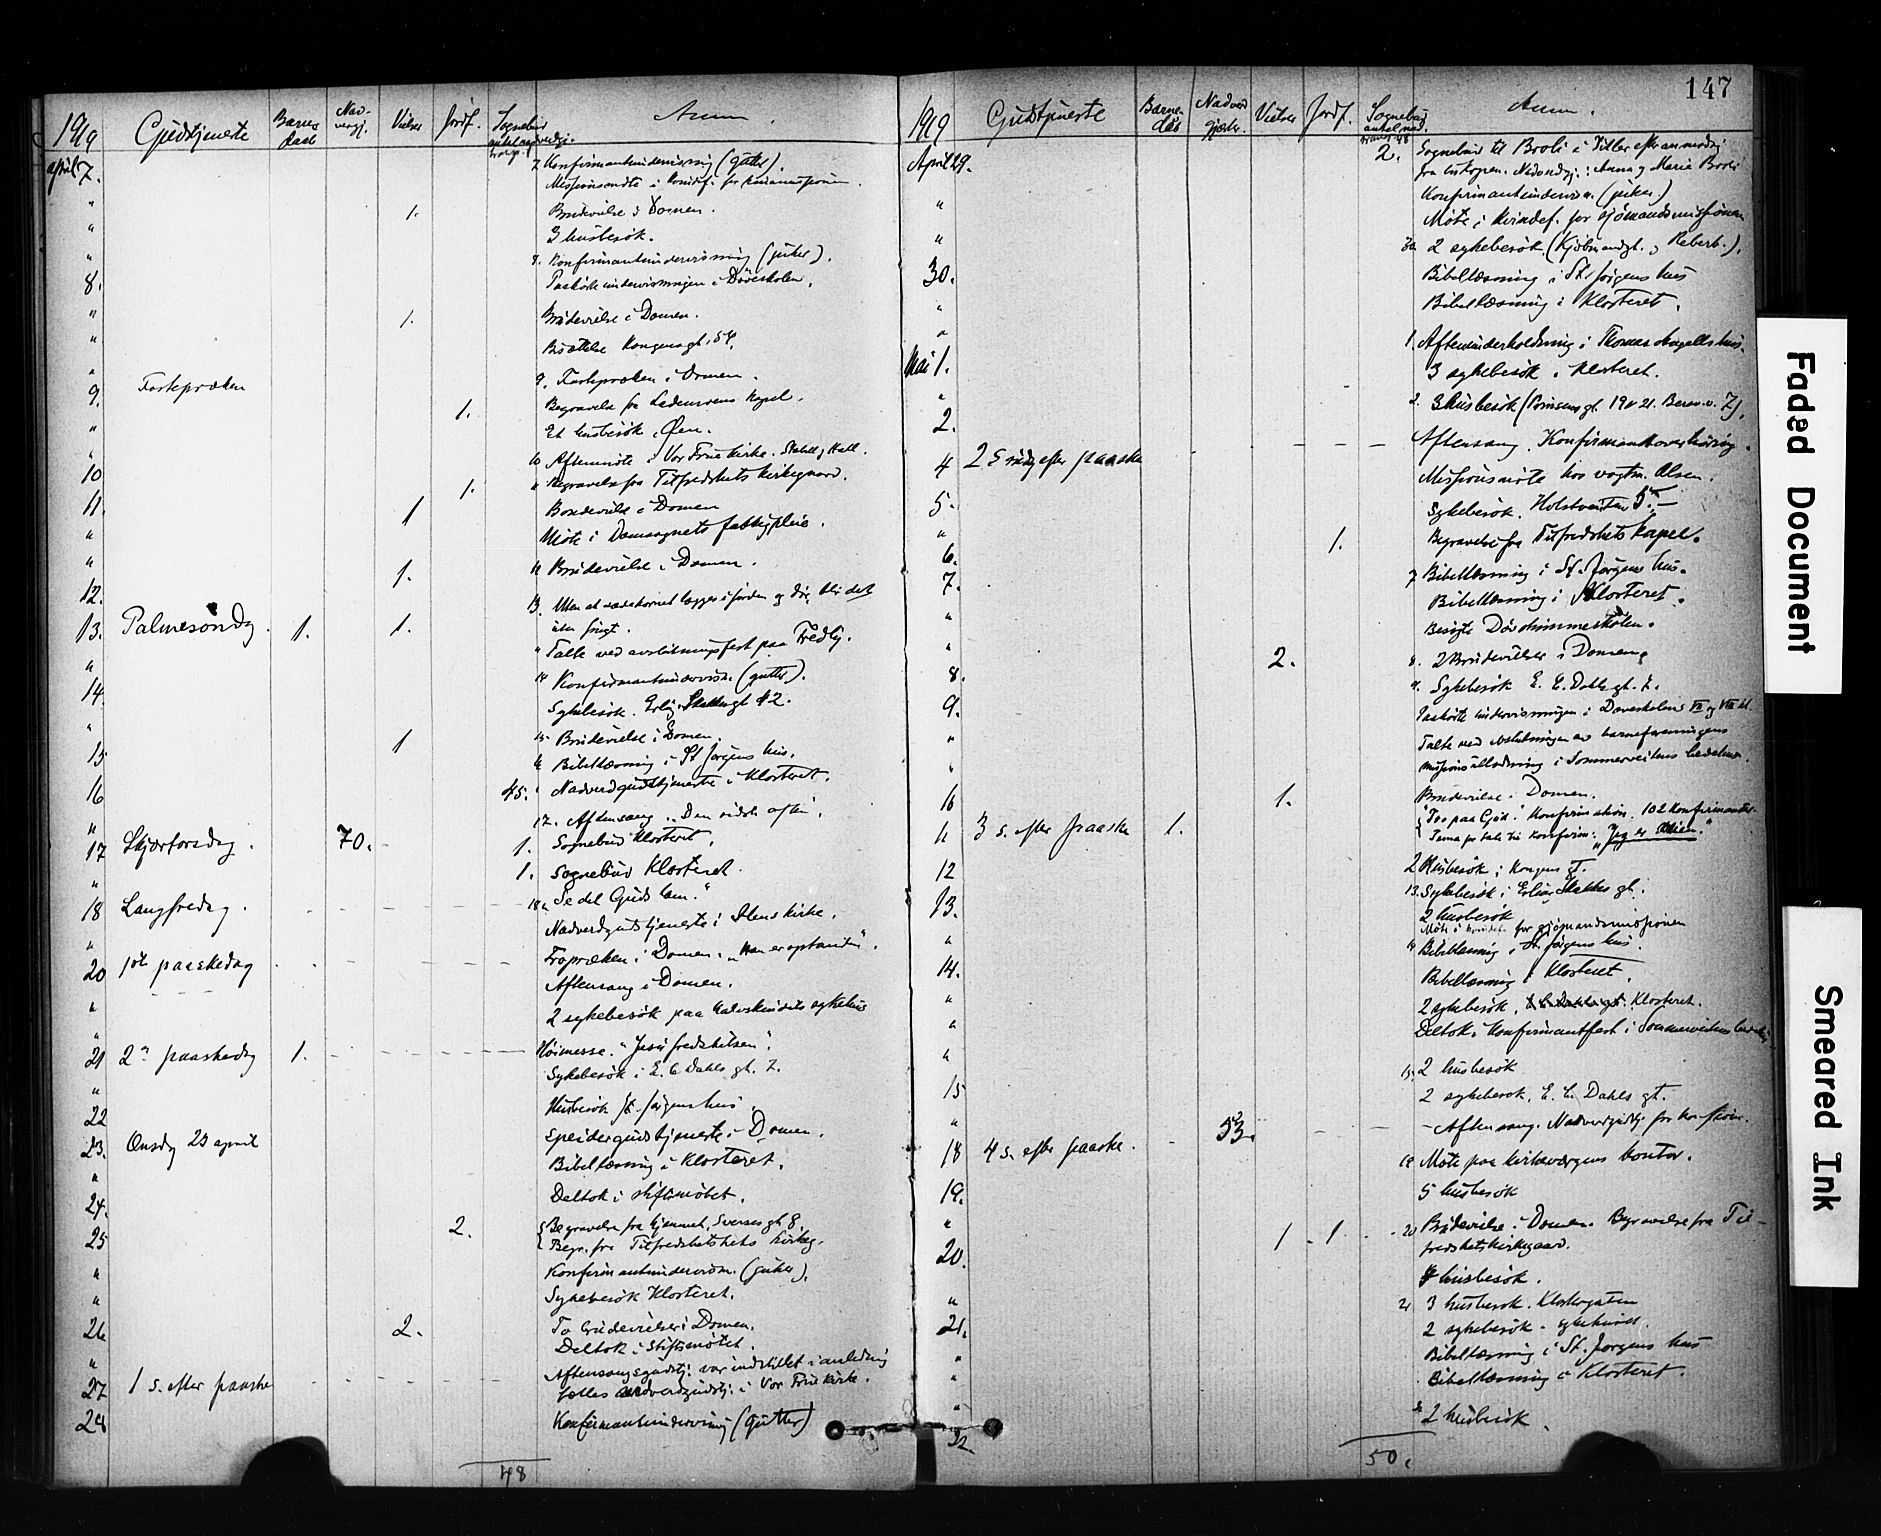 147
1919 Gudstjeneste Barnedaab Nadvergj. Vielser Jordf. Sognebud antal nadvergj. Anm.
april 7. 7 Konfirmantundervisning (gutter)
Missionsmöte i kvindef. for
" 1. Brudevielse i Domen.
" 3 husbesök.
" 8. Konfirmantundervisning (piker).
8. Paahörte undervisningen i Döveskolen.
" 1. Brudevielse i Domen.
" Bisættelse Kongensgt. 54.
" 9. Fastepræken i Domen.
9. Fastepræken 1. Begravelse fra Lademoens kapel.
" Et husbesök, Öen.
" 10 Aftenmöte i Vor Frue kirke.
10 1. " Begravelse fra Tilfredshets kirkegaard.
11. 1 Brudevielse i Domen
" Möte i Domsognets fattigpleie.
" 1. 11 Brudevielse i Domen.
12. 13. Uten at sædekornet lægges i jorden og dör, blir det
13. Palmesöndag. 1. 1. uten frugt.
" " Talte ved avslutningsfest paa Fredly.
14. 14 Konfirmantundervisn. (gutter).
" Sykebesök. Erling Skakkesgt 42.
15 1 15 Brudevielse i Domen.
" Bibellæsning i St Jörgens hus.
16 45. Nadverdgudstjeneste i Klosteret.
" 17. Aftensang. "Den sidste aften".
17 Skjærtorsdag. 70. 1. Sognebud Klosteret.
" 1. Sognebud Klosteret.
18 Langfredag. 18. "Se det Guds lam."
" Nadverdgudstjeneste i Ilens kirke.
20 1ste paaskedag Fropræken i Domen. "Han er opstanden".
" Aftensang i Domen.
" 2 sykebesök paa Kalvskindets sykehus
21 2n paaskedag 1. Höimesse. "Jesu fredshilsen".
" Sykebesök i E. C Dahls gt. 7.
22 Husbesök St. Jörgens hus.
23. Onsdag 23 april Speidergudstjeneste i Domen.
" Bibellæsning i Klosteret.
24. Deltok i stiftsmötet.
25 2. Begravelse fra hjemmet, Sverresgt 8.
Begr. fra Tilfredshetshets kirkeg.
" Konfirmantundervisn. (piker).
" Sykebesök Klosteret.
26 2. To brudevielser i Domen.
" Deltok i stiftsmötet.
27 1 s. efter paaske Aftensangsgudstj. var indstillet i anledning
fælles nadverdgudstj. i Vor Frue kirke.
28 Konfirmantundervisning (gutter)
48
1919 Gudstjeneste Barnedaab Nadverdgjester Vielser Jordf. Sognebud antal nad. Anm.
transp. 48
April 29. 2. Sognebud til Broli i Tiller efter anmodn.
fra biskopen. Nadverdgj.: Anna og Marie Broli
" Konfirmantundervisn. (piker.)
" Möte i kvindef. for sjömandsmissionen
30. 30 2 sykebesök (Kjöbmandsgt. og Reberb.).
" Bibellæsning i St. Jörgens hus
" Bibellæsning i Klosteret.
Mai 1. 1. Aftenunderholdning i Thomas Angells hus.
" 3 sykebesök i Klosteret.
2. 2. 3 husbesök (Prinsensgt. 19 & 21.
4 2 S söndag efter paaske Aftensang. Konfirmantoverhöring.
5. Missionsmöte hos vogtm. Olsen.
" Sykebesök. Holstveiten 5.
6. 1. Begravelse fra Tilfredshets kapel.
7. 7 Bibellæsning i St. Jörgens hus.
" Bibellæsning i Klosteret.
" Besögte Dövstummeskolen.
8. 2. 8. 2 Brudevielser i Domen
9. 9. Sykebesök E. C. Dahls gt. 7.
" Paahörte undervisningen i Döveskolens VII og VIII kl.
" Talte ved avslutningen av barneforeningens
missionsutlodning i Sommerveitens bedehus.
10 1. Brudevielse i Domen.
11 3 s. efter paaske 1. "Tro paa Gud." Konfirmation. 102 konfirmanter.
Tema for tale til konfirm.: "Jeg er Veien."
12 2 Husbesök i Kongens gt.
13. 13. Sykebesök i Erling Skakkes gt.
" 2 husbesök
Möte i kvindef. for sjömandsmissionen
14. 14 Bibellæsning i St. Jörgens hus.
" Bibellæsning i Klosteret.
" 2 sykebesök, Klosteret.
" Deltok i Konfirmantfest i Sommerveitens
15 15. 2 husbesök
" 2 sykebesök, E. C. Dahls gt.
18 4 s. efter paaske. 53. Aftensang. Nadverdgudstj. for
19. 19 Möte paa kirkeværgens kontor.
" 5 husbesök
20. 1 1 20 Brudevielse i Domen. Begravelse fra Til-
fredshetskirkegaard.
" 4 husbesök.
21. 21 3 husbesök. Klostergaten
" 2 sykebesök.
" Bibellæsning i St. Jörgens hus
" Bibellæsning i Klosteret.
22 2 husbesök.
50.
Faded Document
Smeared Ink